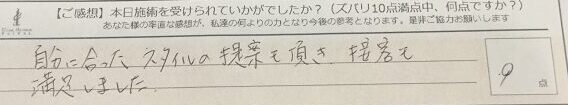 【ご感想】本日施術を受けられていかがでしたか？（ズバリ10点満点中、何点ですか？）
あなた様の率直な感想が、私達の何よりの力となり今後の参考となります。是非ご協力お願いします
自分に合った スタイルの提案も頂き、接客も
満足しました
9 点